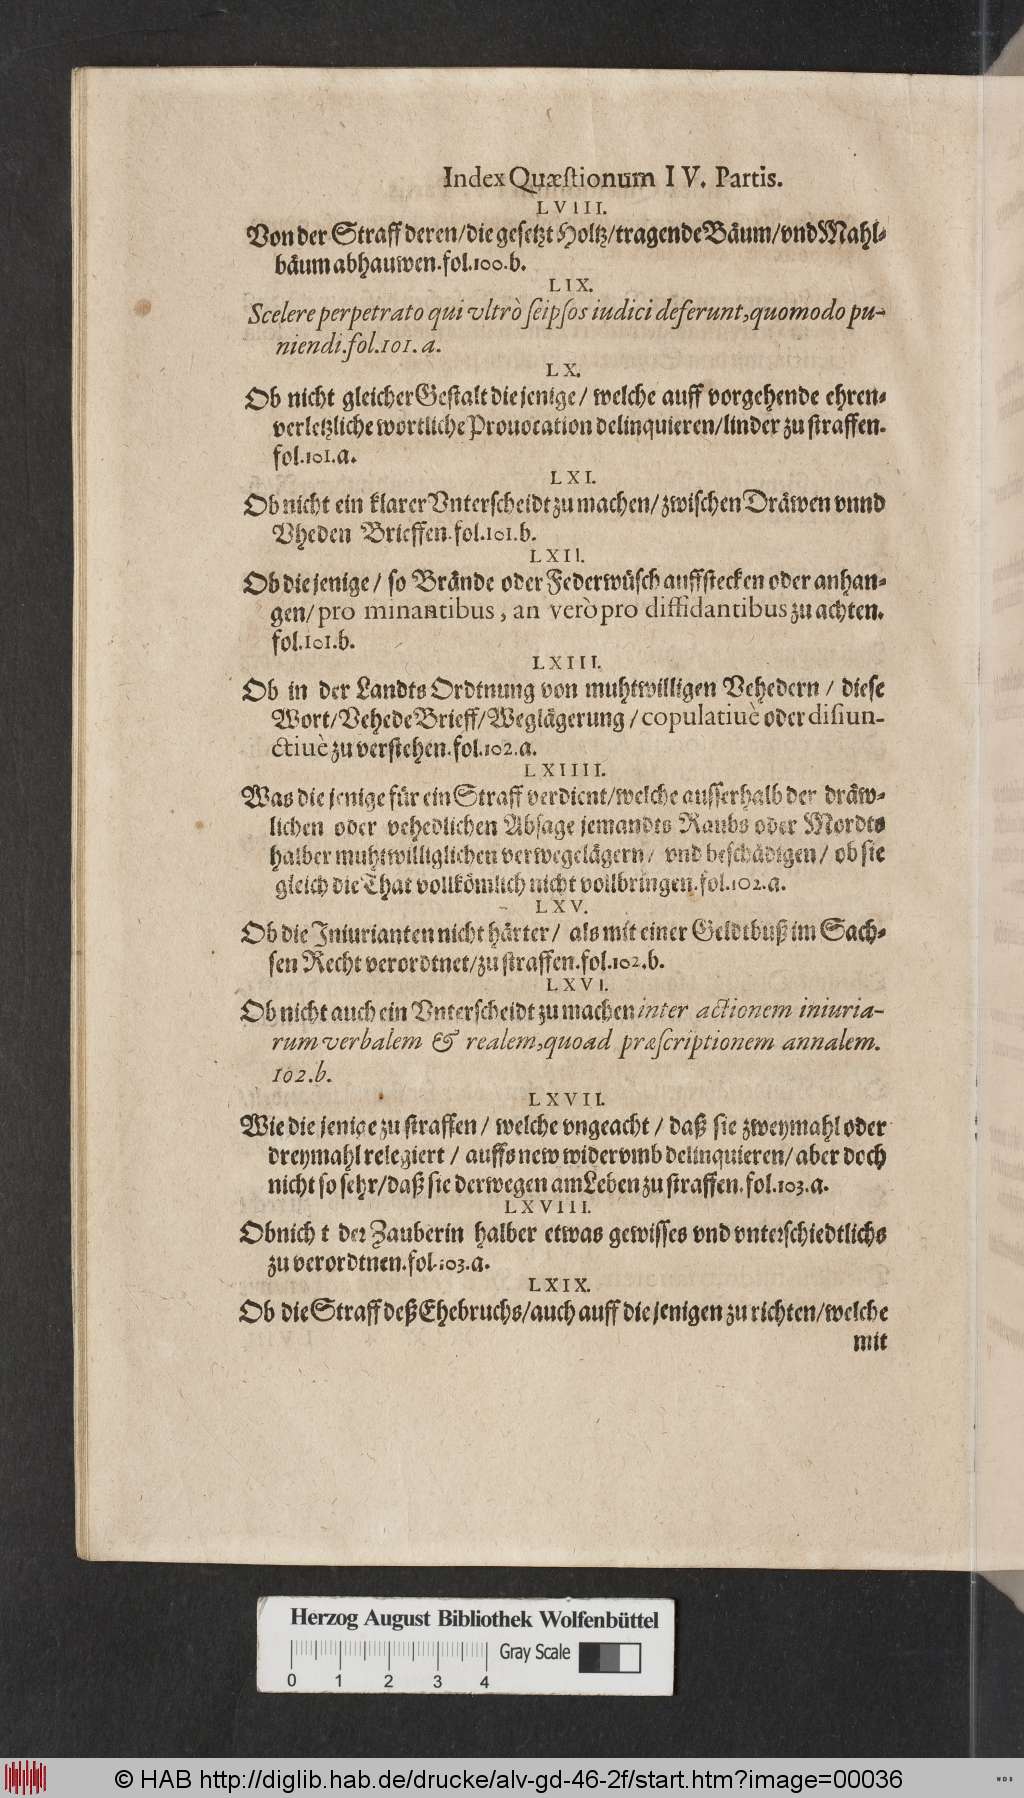 Index Quæſtionum I V. Partis.
L V I I I.
Von der Straff deren/die geſetzt Holtz/tragende Bäum/vnd Mahl-
bäum abhauwen.fol.100.b.
L I X.
Scelere perpetrato qui vltrò ſeipſos iudici deferunt,quomodo pu-
niendi.fol.101.a.
L X.
Ob nicht gleicher Geſtalt die jenige/ welche auff vorgehende ehren-
verletzliche wörtliche Prouocation delinquieren/linder zu ſtraffen.
fol.101.a.
L X I.
Ob nicht ein klarer Vnterſcheidt zu machen/zwiſchen Dräwen vnnd
Vheden Brieffen.fol.101.b.
L X I I.
Ob die jenige/ ſo Brände oder Federwüſch auffſtecken oder anhan-
gen/pro minantibus, an verò pro diffidantibus zu achten.
fol.101.b.
L X I I I.
Ob in der Landts Ordtnung von muhtwilligen Vehedern / dieſe
Wort/Vehede Brieff/Weglägerung/copulatiuè oder diſiun-
ctiuè zu verſtehen.fol.102.a.
L X I I I I.
Was die jenige für ein Straff verdient/welche auſſerhalb der dräw-
lichen oder vehedlichen Abſage jemandts Raubs oder Mordts
halber muhtwilliglichen verwegelägern/ vnd beſchädigen/ ob ſie
gleich die That vollkömlich nicht vollbringen.fol.102.a.
L X V.
Ob die Iniurianten nicht härter/ als mit einer Geldtbuß im Sach-
ſen Recht verordtnet/zu ſtraffen.fol.102.b.
L X V I.
Ob nicht auch ein Vnterſcheidt zu machen inter actionem iniuria-
rum verbalem & realem,quoad præſcriptionem annalem.
102.b.
L X V I I.
Wie die jenige zu ſtraffen/ welche vngeacht / daß ſie zweymahl oder
dreymahl relegiert / auffs new widervmb delinquieren/ aber doch
nicht ſo ſehr/daß ſie derwegen am Leben zu ſtraffen.fol.103.a.
L X V I I I.
Ob nicht der Zauberin halber etwas gewiſſes vnd vnterſchiedtlichs
zu verordtnen.fol.103.a.
L X I X.
Ob die Straff deß Ehebruchs/auch auff die jenigen zu richten/welche
mit
Herzog August Bibliothek Wolfenbüttel
Gray Scale
0 1 2 3 4
© HAB http://diglib.hab.de/drucke/alv-gd-46-2f/start.htm?image=00036